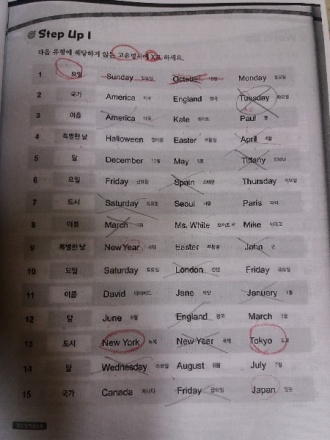 Step Up 1
다음 유형에 해당하지 않는 고유명사에 X표 하세요.
1 요일 Sunday 일요일 October Monday 월요일
2 국가 America 미국 England 영국 Tuesday 화요일
3 이름 America 미국 Kate 케이트 Paul 폴
4 특별한 날 Halloween 할로윈 Easter 부활절 April 4월
5 달 December 12월 May 5월 Tiffany 티파니
6 요일 Friday 금요일 Spain 스페인 Thursday 목요일
7 도시 Saturday 토요일 Seoul 서울 Paris 파리
8 이름 March 3월 Ms. White Mike 마이크
9 특별한 날 New Year 새해 Easter 부활절 John 존
10 요일 Saturday 토요일 London 런던 Friday 금요일
11 이름 David 데이비드 Jane 제인 January 1월
12 달 June 6월 England 영국 March 3월
13 도시 New York 뉴욕 New Year 새해 Tokyo 도쿄
14 달 Wednesday 수요일 August 8월 July 7월
15 국가 Canada 캐나다 Friday 금요일 Japan 일본